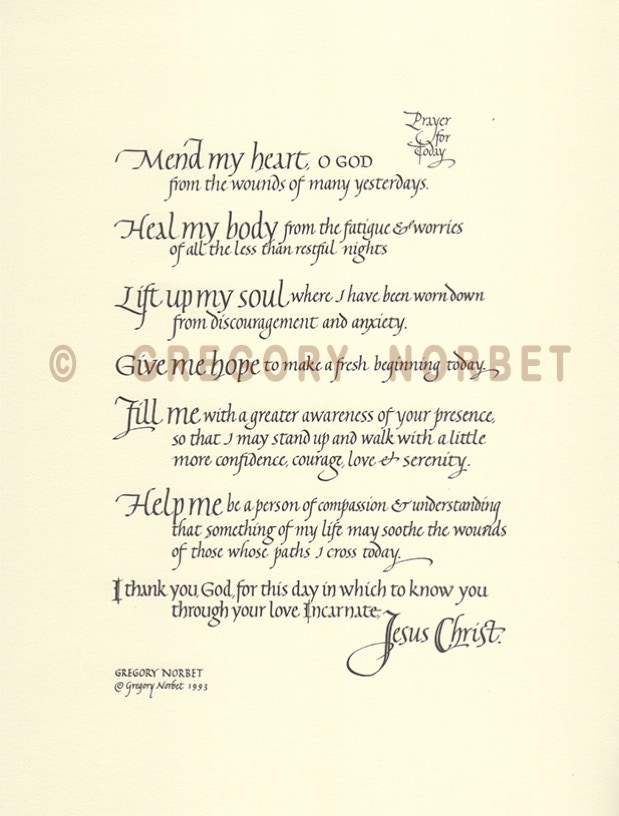 Prayer
for
Today
Mend my heart, O GOD
from the wounds of many yesterdays.
Heal my body from the fatigue & worries
of all the less than restful nights
Lift up my soul where I have been worn down
from discouragement and anxiety.
Give me hope to make a fresh beginning today.
© GREGORY NORBET
Fill me with a greater awareness of your presence,
so that I may stand up and walk with a little
more confidence, courage, love & serenity.
Help me be a person of compassion & understanding
that something of my life may soothe the wounds
of those whose paths I cross today.
I thank you, God, for this day in which to know you
through your love Incarnate,
Jesus Christ.
GREGORY NORBET
© Gregory Norbet 1993